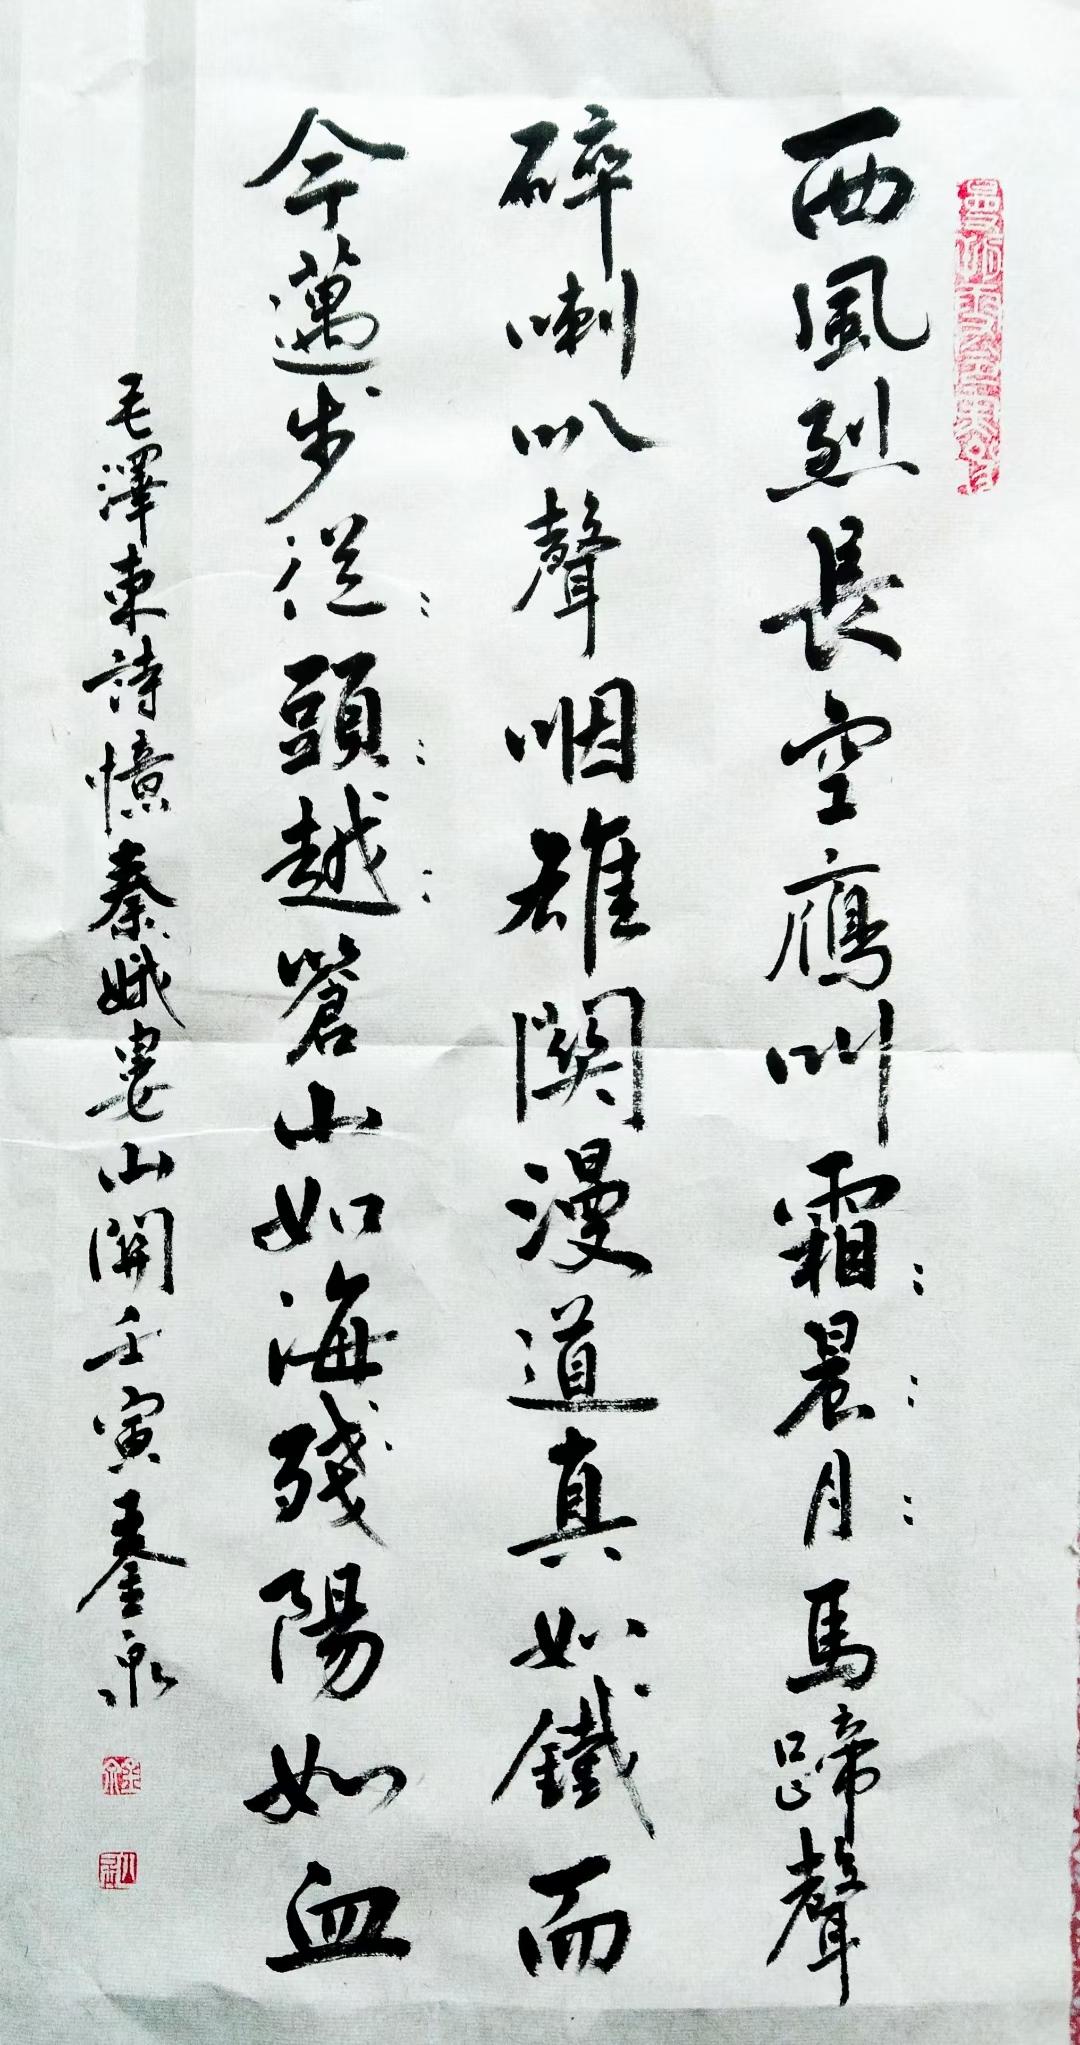 西風烈長空鴈叫霜：晨：月：馬蹄聲
碎喇叭聲咽雄関漫道真如鐵而
今邁步從：頭：越：蒼山如海殘陽如血
毛澤東詩憶秦娥婁山關壬寅鋆泉